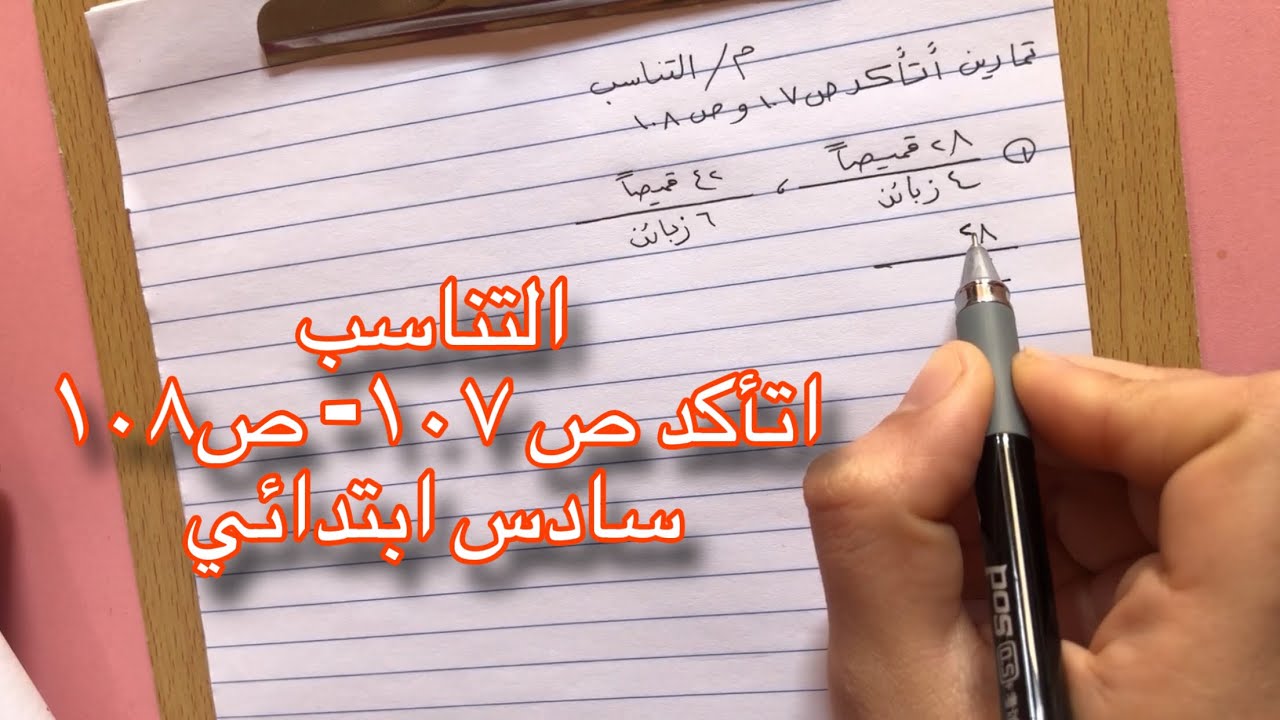 م/ التناسب
تمارين أتأكد ص ١٠٧ و ص ١٠٨
① ٢٨ قميصاً / ٤ زبائن ، ٤٢ قميصاً / ٦ زبائن
٢٨
التناسب
اتأكد ص ١٠٧- ص١٠٨
سادس ابتدائي
pos